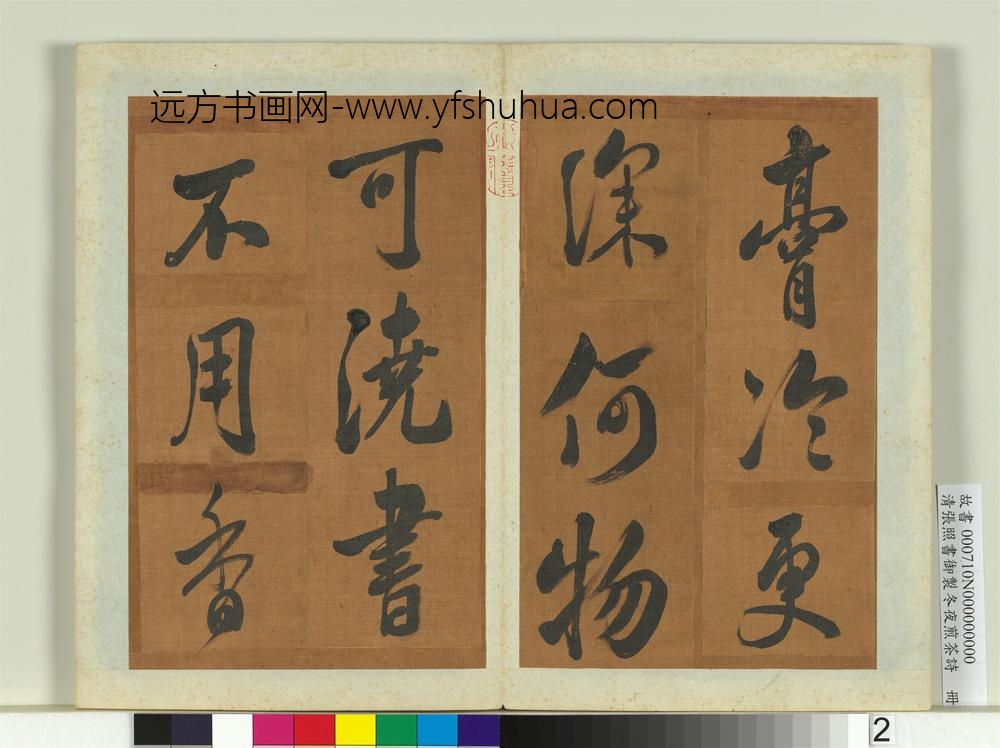 远方书画网-www.yfshuhua.com
膏冷更
深何物
可澆書
不用香
故書 000710N000000000
清張照書御製冬夜煎茶詩 冊
2